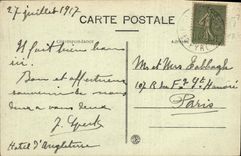 27 juillet 1917
CARTE POSTALE
Correspondance
Il fait bien beau
ici.
Bon et affectueux
souvenir de nous
deux a vous deux
Hotel d'Angleterre
Mr et Mrs Sabbagh
107 R du Fg St Honoré
Paris